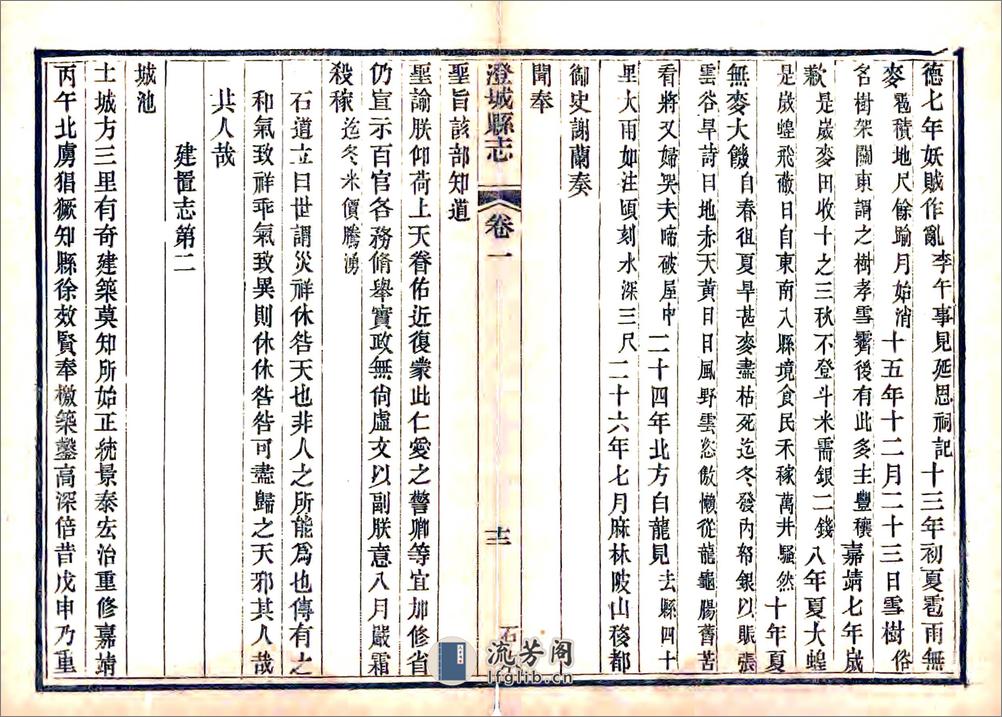 德七年妖賊作亂李午事見延恩祠記十三年初夏雹雨無
麥雹積地尺餘踰月始消十五年十二月二十三日雪樹俗
名樹架關東謂之樹孝雪霽後有此多主豐穰嘉靖七年歲
歉是歲麥田收十之三秋不登斗米需銀二錢八年夏大蝗
是歲蝗飛蔽日自東南入縣境食民禾稼萬井騷然十年夏
無麥大饑自春徂夏旱甚麥盡枯死迄冬發內帑銀以賑張
雲谷旱詩曰地赤天黃日日風野雲恣傲懶從龍龜腸舊苦
看將又婦哭夫啼破屋中二十四年北方白龍見去縣四十
里大雨如注頃刻水深三尺二十六年七月麻林陂山移都
御史謝蘭奏
聞奉
澄城縣志
卷一
十二
石
聖旨該部知道
聖諭朕仰荷上天眷佑近復蒙此仁愛之警卿等宜加修省
仍宣示百官各務脩舉實政無尙虛文以副朕意八月嚴霜
殺稼迄冬米價騰湧
石道立曰世謂災祥休咎天也非人之所能爲也傳有之
和氣致祥乖氣致異則休休咎咎可盡歸之天邪其人哉
其人哉
建置志第二
城池
土城方三里有奇建築莫知所始正統景泰宏治重修嘉靖
丙午北虜猖獗知縣徐效賢奉檄築鑿高深倍昔戊申乃重
流芳阁
lfglib.cn